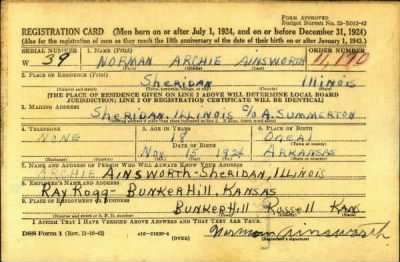 FORM APPROVED
Budget Bureau No. 33-R012-42
REGISTRATION CARD (Men born on or after July 1, 1924, and on or before December 31, 1924)
(Also for the registration of men as they reach the 18th anniversary of the date of their birth on or after January 1, 1943.)
SERIAL NUMBER 1. NAME (Print) ORDER NUMBER
W 39 NORMAN ARCHIE AINSWORTH 11,190
2. PLACE OF RESIDENCE (Print)
Sheridan Illinois
[THE PLACE OF RESIDENCE GIVEN ON LINE 2 ABOVE WILL DETERMINE LOCAL BOARD
JURISDICTION; LINE 2 OF REGISTRATION CERTIFICATE WILL BE IDENTICAL]
3. MAILING ADDRESS
Sheridan, Illinois c/o A. Summerton
4. TELEPHONE 5. AGE IN YEARS 6. PLACE OF BIRTH
NONE 18
DATE OF BIRTH
Nov 15 1924 ARKANSAS
7. NAME AND ADDRESS OF PERSON WHO WILL ALWAYS KNOW YOUR ADDRESS
ARCHIE AINSWORTH-SHERIDAN, ILLINOIS
8. EMPLOYER'S NAME AND ADDRESS
RAY ROGG- BUNKER HILL, KANSAS
9. PLACE OF EMPLOYMENT OR BUSINESS
BUNKER HILL Russell KANS
I AFFIRM THAT I HAVE VERIFIED ABOVE ANSWERS AND THAT THEY ARE TRUE.
DSS Form 1 (Rev. 11-16-42) (OVER) Norman Ainsworth